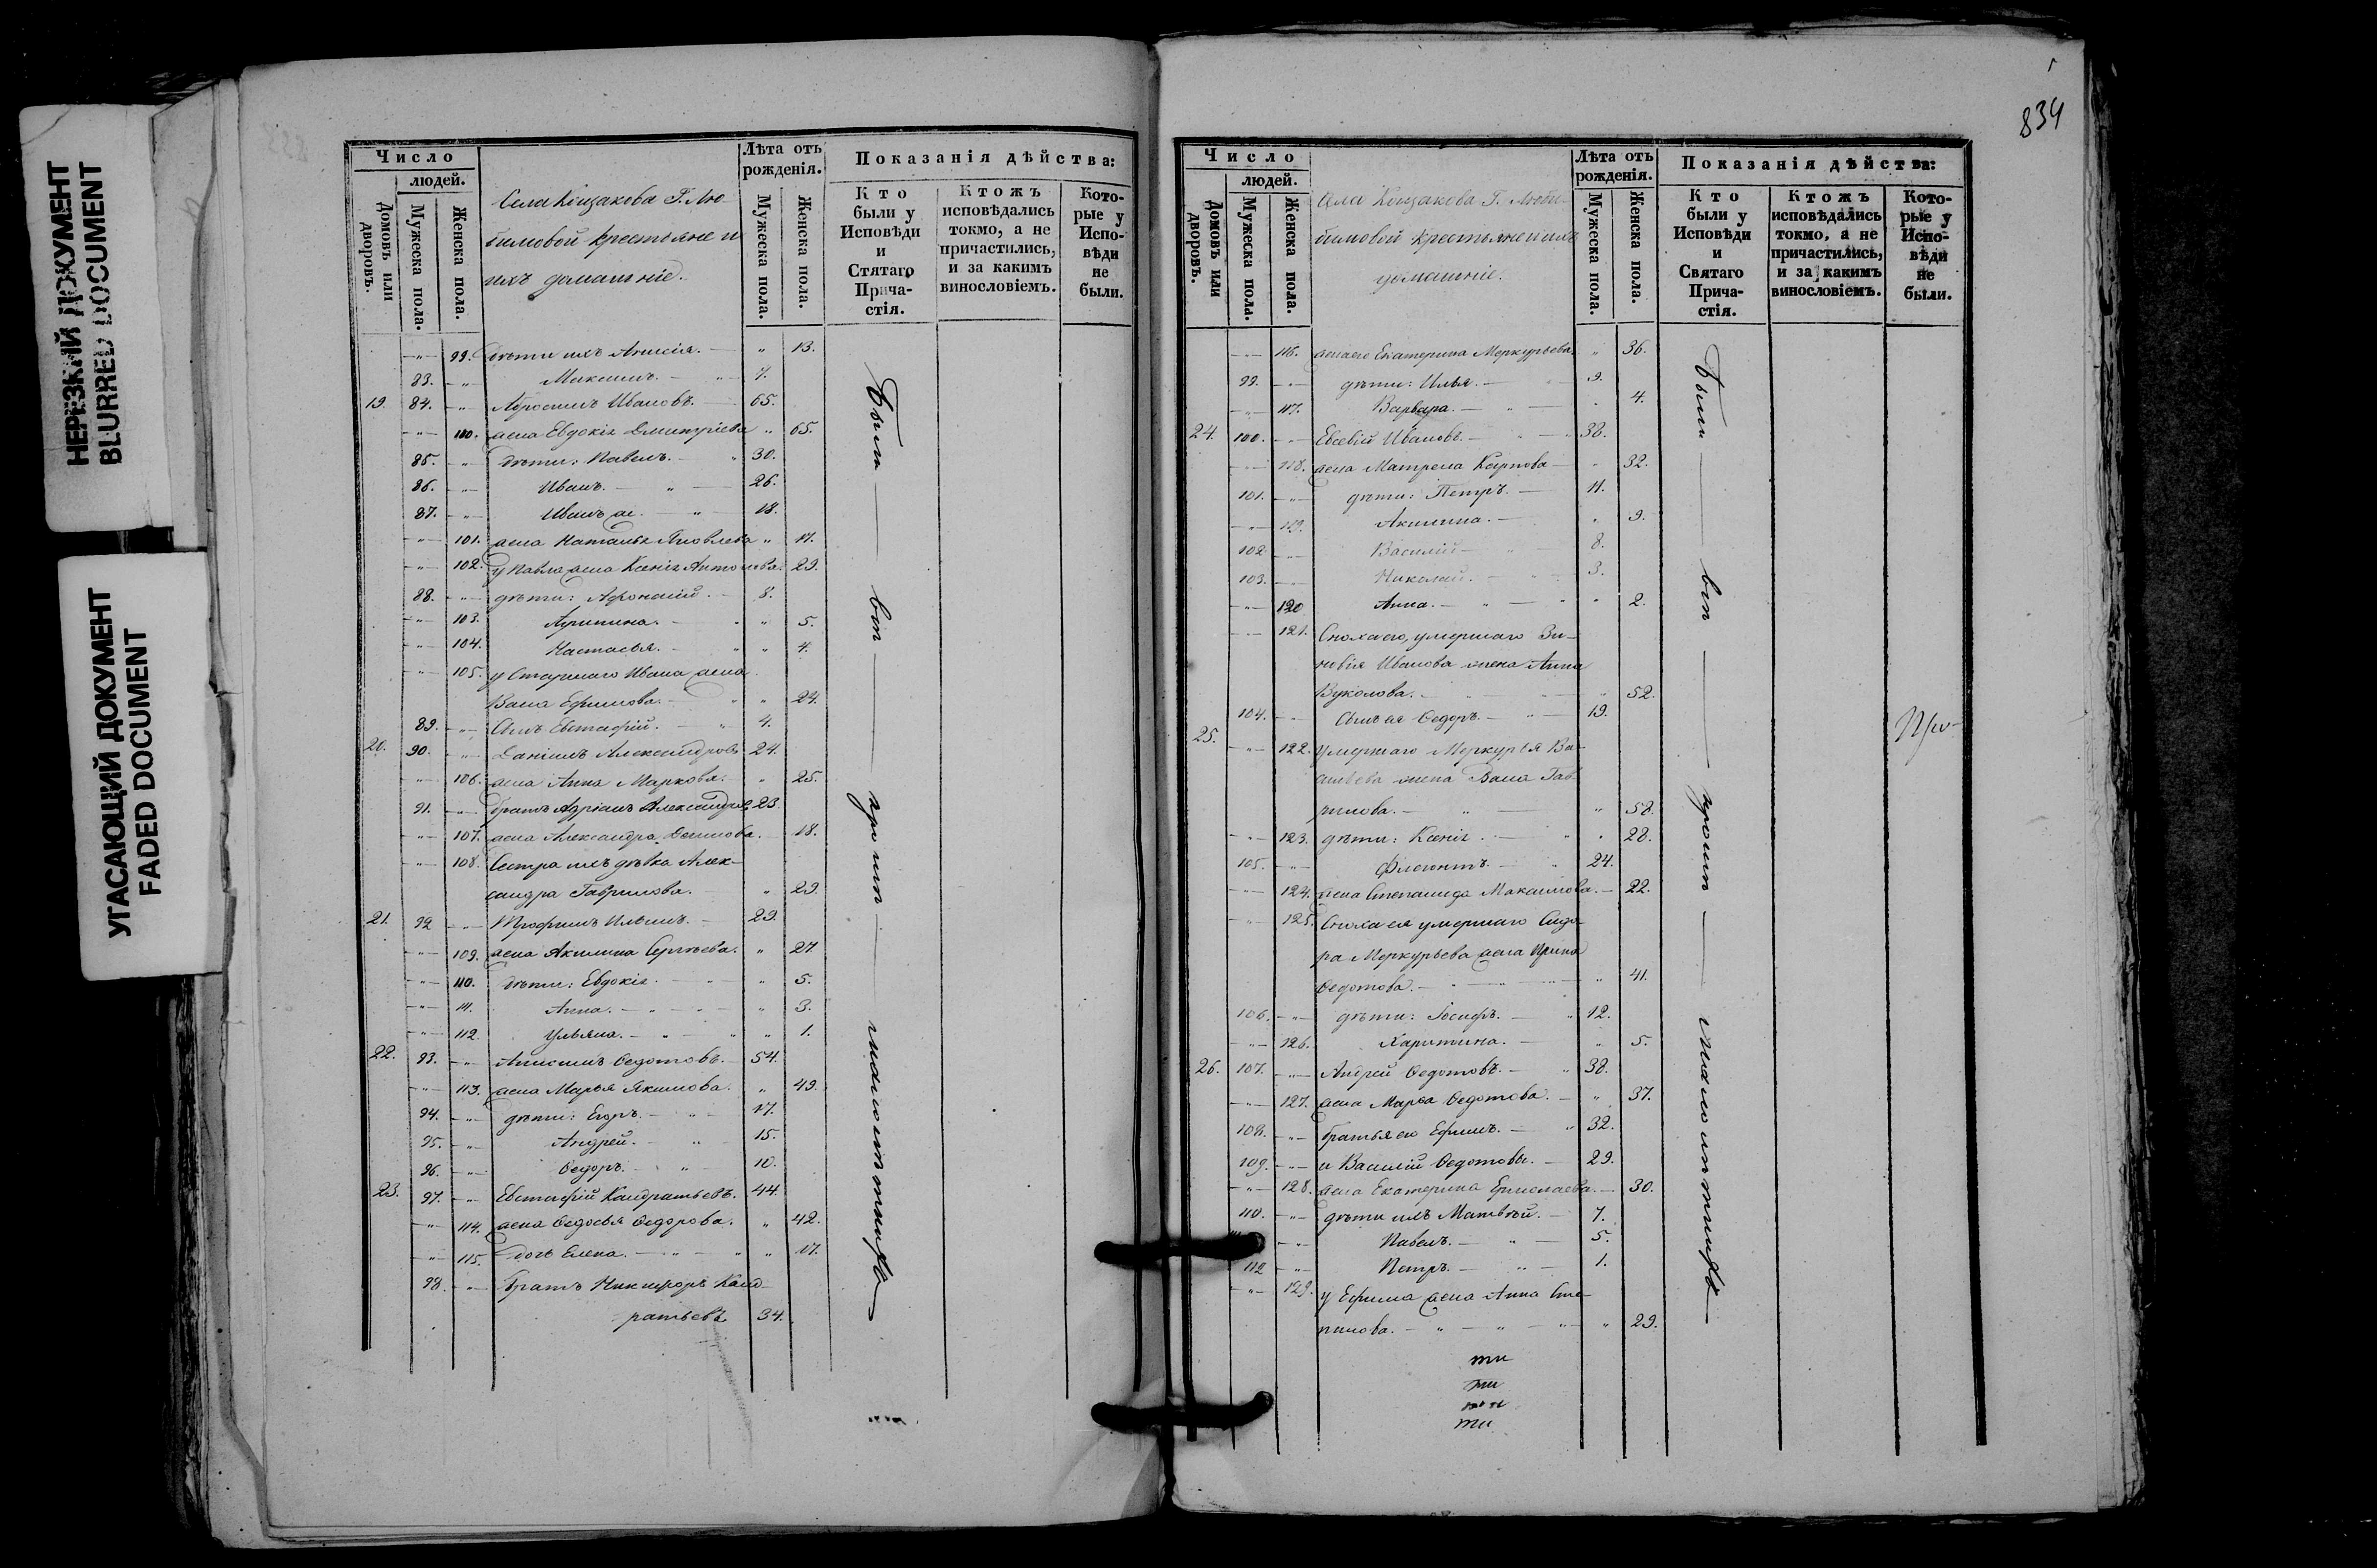 НЕРЕЗКИЙ ДОКУМЕНТ
BLURRED DOCUMENT
УГАСАЮЩИЙ ДОКУМЕНТ
FADED DOCUMENT
Число
людей.
Домовъ или дворовъ.
Мужеска пола.
Женска пола.
Села Кощакова Г. Лю-
бимовой крестьяне и
ихъ домашніе.
Лѣта отъ рожденія.
Мужеска пола.
Женска пола.
Показанія дѣйства:
Кто были у Исповѣди и Стятаго Прича-стія.
Ктожъ исповѣдались токмо, а не причастились, и за какимъ винословіемъ.
Кото-рые у Испо-вѣди не были.
99. дѣти ихъ Анисія. 13.
83. Максимъ. 7.
19. 84. Абросимъ Ивановъ. 65.
100. жена Евдокія Дмитріева 65.
85. дѣти: Павелъ. 30.
86. Иванъ. 26.
87. Иванъ же. 18.
101. жена Наталья Яковлева
102. у Павла жена Ксенія Антонова 29.
88. дѣти: Афонасій. 8.
103. 5.
104. Настасья. 4.
105. у Старшаго Ивана жена
Ефимова. 24.
89. Сынъ Евстафій. 4.
20. 90. Даніилъ Александровъ 24.
106. жена Анна Маркова. 25.
91. братъ Адріанъ Александровъ 23
107. жена Александра 18.
108. Сестра ихъ дѣвка Алек-
сандра Гаврилова. 29
21. 92 Трофимъ Ильинъ. 29.
109. жена Акилина Сергѣева. 27
110. дѣти: Евдокія. 5.
111. Анна. 3.
112. Ульяна. 1.
22. 93. Анисимъ Ѳедотовъ. 54.
113. жена Марья Якимова. 49.
94. дѣти: Егоръ. 17.
95. Андрей. 15.
96. Ѳедоръ. 10.
23. 97. Евстафій Кандратьевъ. 44.
114. жена Ѳедосья Ѳедорова. 42.
115. дочь Елена. 17.
98. братъ Никифоръ Канд-
ратьевъ 34.
Были
834
Число
людей.
Домовъ или дворовъ.
Мужеска пола.
Женска пола.
Села Кощакова Г. Люби-
бимовой крестьяне и ихъ
домашніе.
Лѣта отъ рожденія.
Мужеска пола.
Женска пола.
Показанія дѣйства:
Кто были у Исповѣди и Святаго Прича-стія.
Ктожъ исповѣдались токмо, а не причастились, и за какимъ винословіемъ.
Кото-рые у Испо-вѣди не были.
116. жена его Екатерина Меркурьева 36.
99. дѣти: Илья. 9.
117. Варвара. 4.
24. 100. Евсевій Ивановъ. 38.
118. жена Матрена Карпова 32.
101. дѣти: Петръ. 11.
119. Акилина. 9.
102 Василій 8.
103. Николай. 3.
120 Анна. 2.
121. Сноха его, умершаго Зи-
новія Иванова жена Анна
Вуколова. 52.
104. Сынъ ея Ѳедоръ. 19.
25. 122. умершаго Меркурья Ва-
сильева жена Гав-
рилова. 58.
123. дѣти: Ксенія. 28.
105. Флегонтъ. 24.
124. жена Степанида Максимова. 22.
125. Сноха ея умершаго Сидо-
ра Меркурьева жена Ирина
Ѳедотова. 41.
106. дѣти: Іосифъ. 12.
126. Харитина. 5.
26. 107. Андрей Ѳедотовъ. 38.
127. жена Марѳа Ѳедотова. 37.
108. братья его Ефимъ. 32.
109. и Василій Ѳедотовы. 29.
128. жена Екатерина Ермолаева. 30.
110. дѣти ихъ Матвѣй. 7.
Павелъ. 5.
112 Петръ. 1.
129. у Ефима жена Анна
29.
Были